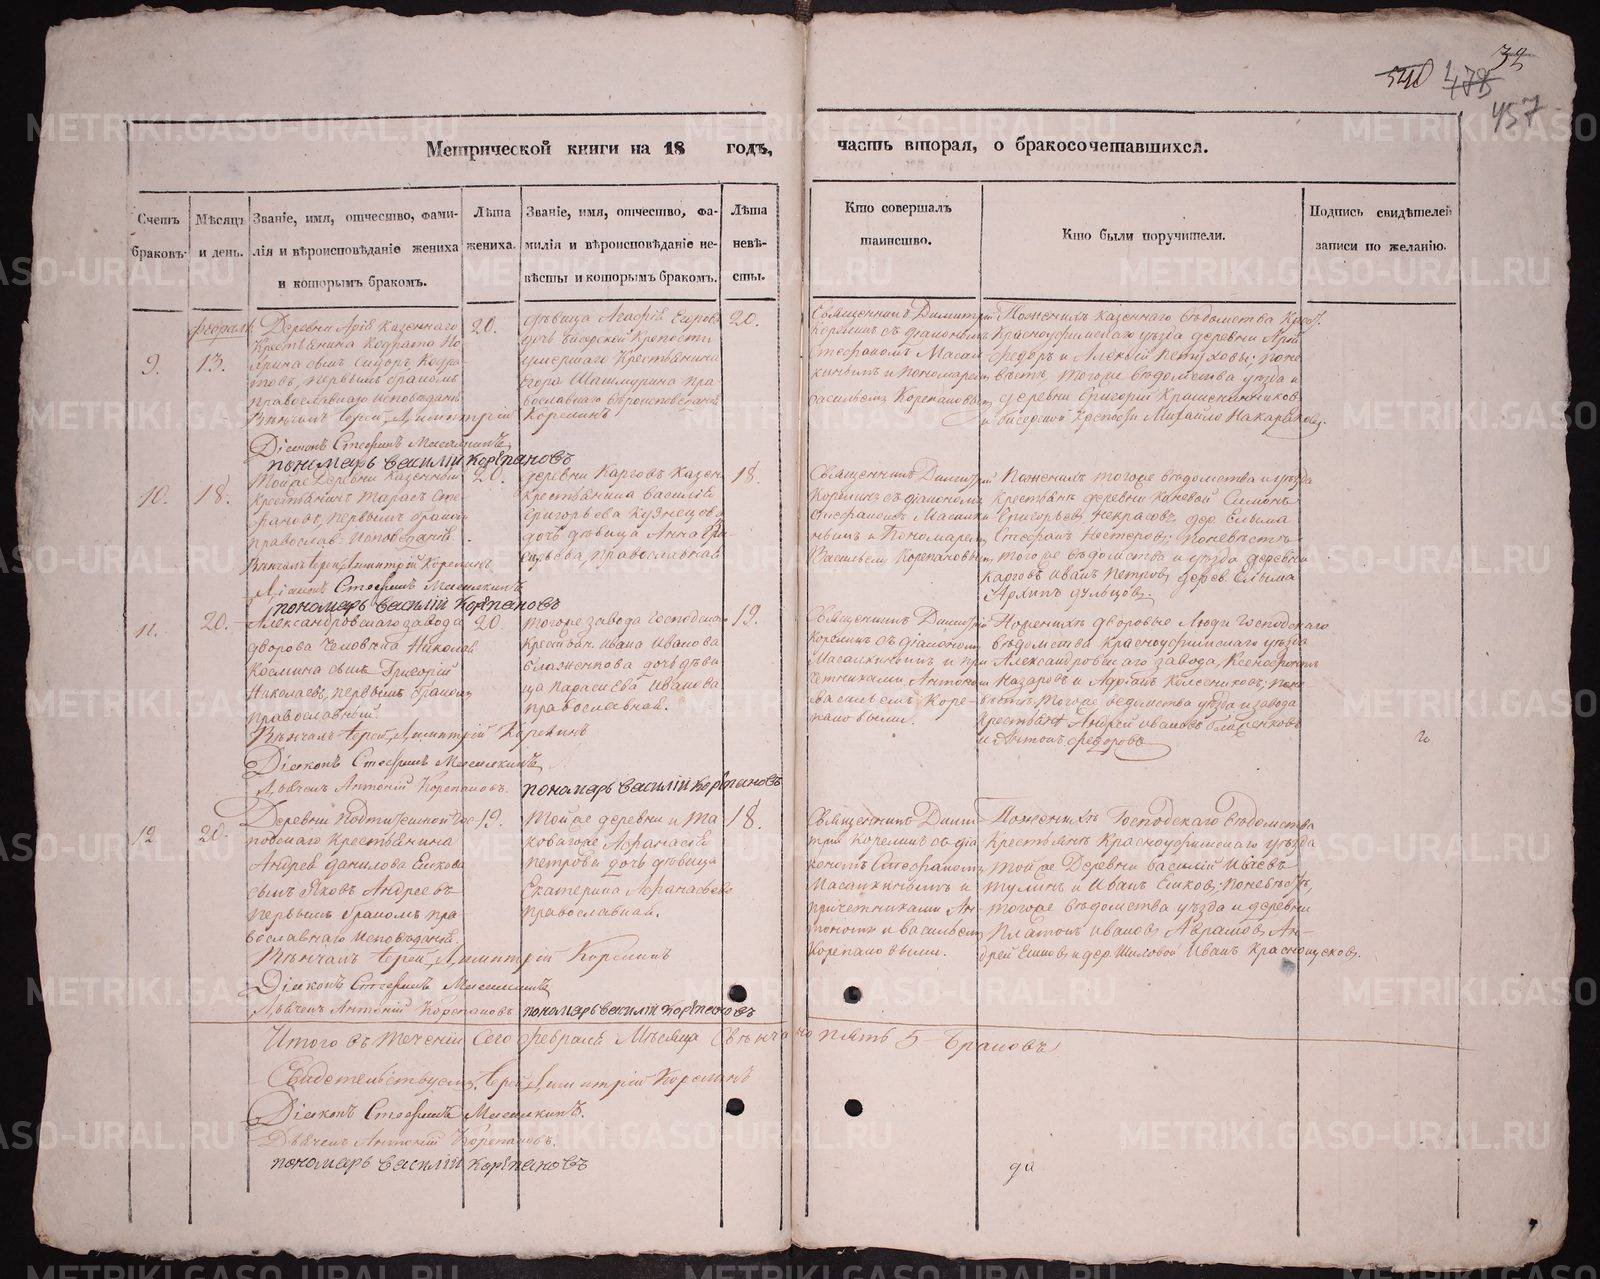 32
540 478
457
Метрической книги на 18 годъ, часть вторая, о бракосочетавшихся.
Счетъ браковъ.
Мѣсяцъ и день.
Званіе, имя, отчество, фами-
лія и вѣроисповѣданіе жениха
и которымъ бракомъ.
Лѣта
жениха.
Званіе, имя, отчество, фа-
милія и вѣроисповѣданіе не-
вѣсты и которымъ бракомъ.
Лѣта
невѣ-
сты.
Кто совершалъ
таинство.
Кто были поручители.
Подпись свидѣтелей
записи по желанію.
9.
февраль
13.
Деревни Арій казеннаго
Крестьянина
сынъ Сидоръ
первымъ бракомъ
православнаго исповѣданія
Вѣнчалъ Іерей Димитрій Корелинъ
Діаконъ Стефанъ Масалкинъ
пономарь Василій Корѣпановъ
20.
дѣвица Агафія Егоров
дочь Бисерской Крепости
умершаго Крестьянина
Егора Шашмурина пра-
вославнаго вѣроисповѣданія
20.
Священникъ Димитрій
Корелинъ съ діакономъ
Стефаномъ Масал-
кинымъ и пономаремъ
Васильемъ Корепановымъ
По женихѣ казеннаго вѣдомства
Красноуфимскаго уѣзда деревни Арій
Федоръ и Алексѣй Петуховы; по не-
вѣстѣ тогоже вѣдомства уѣзда и
деревни Григорій
и бисерской крепости Михайло
10.
18.
Тойже Деревни казенной
крестьянинъ Тарасъ Сте-
фановъ, первымъ бракомъ
православ: исповѣданія
Вѣнчалъ Іерей Димитрій Корелинъ
Діаконъ Стефанъ Масалкинъ
пономарь Василій Корѣпановъ
20.
деревни Каргов казен
крестьянина Василія
Григорьева Кузнецова
дочь дѣвица Анна Ва-
сильева, православная
18.
Священникъ Димитрій
Корелинъ съ діакономъ
Стефаномъ Масалки-
нымъ и Пономаремъ
Васильемъ Корепановымъ
По женихѣ тогоже вѣдомства и уѣзда
Крестьян деревни Каневой Симонъ
Григорьевъ Некрасовъ, дер. Елыма
Стефанъ Нестеровъ; по невѣстѣ
тогоже вѣдомства и уѣзда деревни
Каргов Иванъ Петров дерев. Елыма
Архип
11.
20.
Александровскаго завода
дворова человѣка Николая
Космина сынъ Григорій
Николаевъ, первымъ бракомъ
православный.
Вѣнчалъ Іерей Димитрій Корелинъ
Діаконъ Стефанъ Масалкинъ
Дьячекъ Антоній Корепановъ.
20.
тогоже завода господскаго
крестьян. Ивана Иванова
Блаженкова дочь дѣви-
ца Параскева Иванова
православная.
пономарь Василій Корѣпановъ
19.
Священникъ Димитрій
Корелинъ съ діакономъ
Масалкинымъ и при-
четниками Антоніемъ
Васильемъ Коре-
пановыми.
По женихѣ дворовые люди господскаго
вѣдомства Красноуфимскаго уѣзда
Александровскаго завода, Ксенофонтъ
Назаровъ и Адріанъ Колесниковъ; по не-
вѣстѣ тогоже вѣдомства уѣзда и завода
Крестьян Андрей Ивановъ Блаженковъ
и Антонъ Федоровъ
12.
20.
Деревни
Крестьянина
Андрея Данилова Ешкова
сынъ Яковъ Андреевъ
первымъ бракомъ пра-
вославнаго исповѣданія.
Вѣнчалъ Іерей Димитрій Корелинъ
Діаконъ Стефанъ Масалкинъ
Дьячекъ Антоній Корепановъ
19.
тойже деревни и та-
ковагоже Афанасія
Петрова дочь дѣвица
Екатерина Афанасьева
православная.
пономарь Василій Корѣпановъ
18.
Священникъ Дими-
трій Корелинъ съ діа-
кономъ Стефаномъ
Масалкинымъ и
причетниками Ан-
тоніемъ и Васильемъ
Корепановыми.
По женихѣ Господскаго вѣдомства
Крестьянъ Красноуфимскаго уѣзда
тойже Деревни Василій
и Иванъ Ешков; по невѣстѣ,
тогоже вѣдомства уѣзда и деревни
Платонъ Иванов Аврамов Ан-
дрей Ешков и дер. Шиловой Иванъ
Итого въ теченіи сего февраля Мѣсяца Свѣнчано пять 5 Браковъ
Свидетельствуемъ Іерей Димитрій Корелинъ
Діаконъ Стефанъ Масалкинъ.
Дьячекъ Антоній Корепановъ.
пономарь Василій Корѣпановъ
METRIKI.GASO-URAL.RU